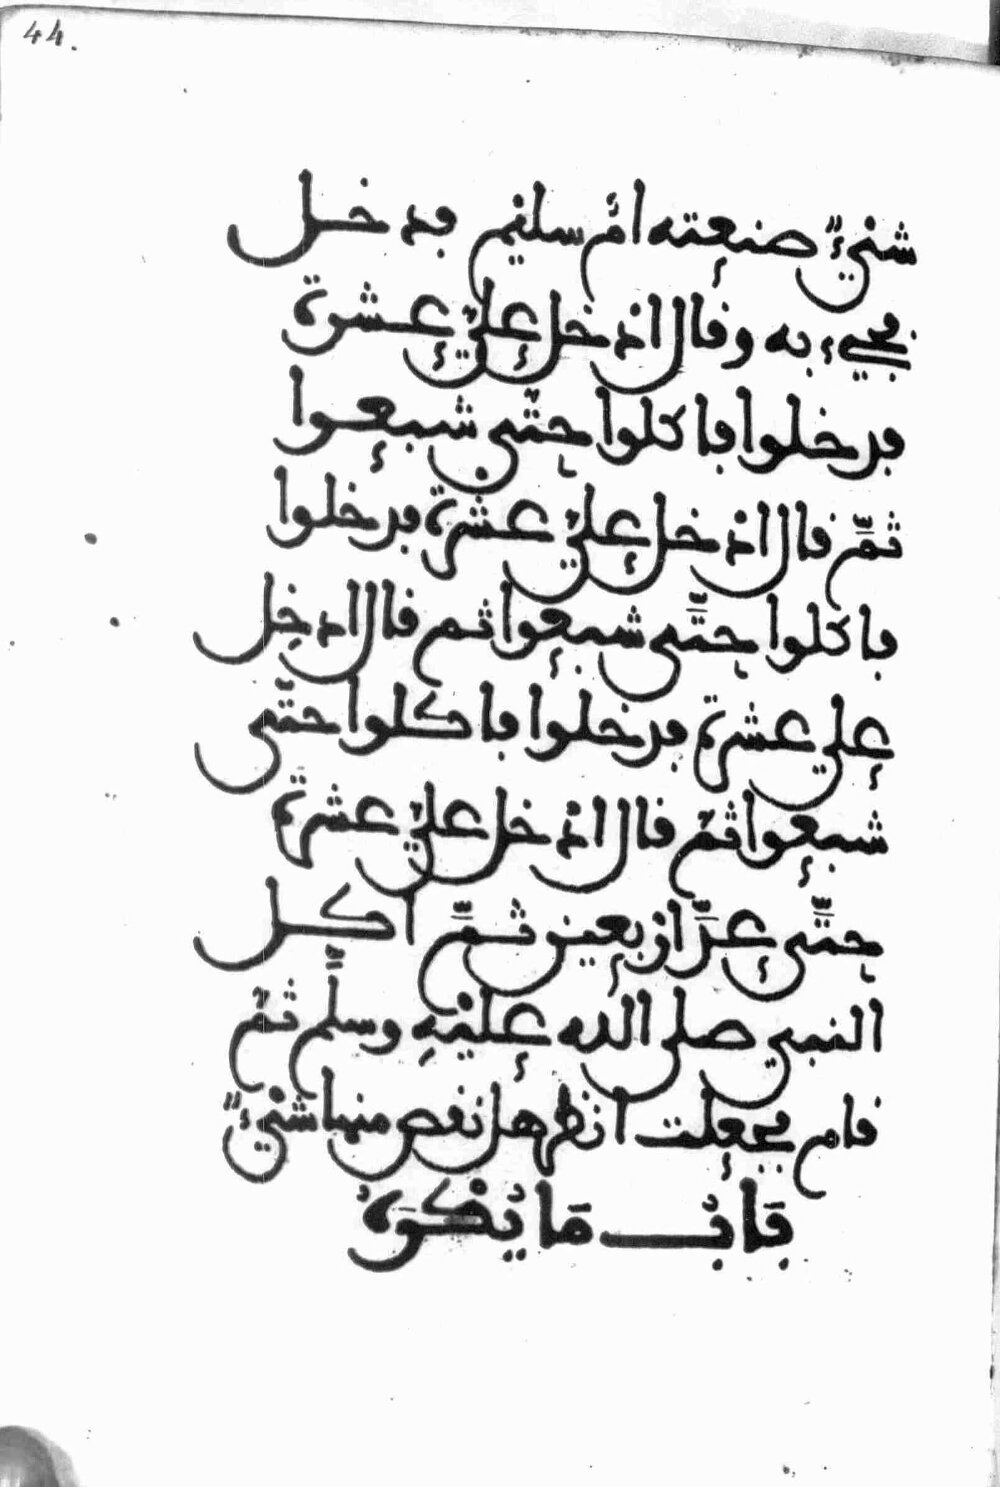 44.
شيءٌ صنعته أمّ سليم فدخل
فجيء به وقال ادخل عليّ عشرة
فدخلوا فاكلوا حتّى شبعوا
ثمّ قال ادخل عليّ عشرة فدخلوا
فاكلوا حتّى شبعوا ثم قال ادخل
علي عشرة فدخلوا فاكلوا حتّى
شبعوا ثمّ قال ادخل عليّ عشرة
حتّى عدّ اربعين ثمّ اكل
النبي صلى الله عليه وسلّم ثمّ
قام فجعلت انظر هل نقص منها شيءٌ
بَابُ مَا يُكْرَهُ